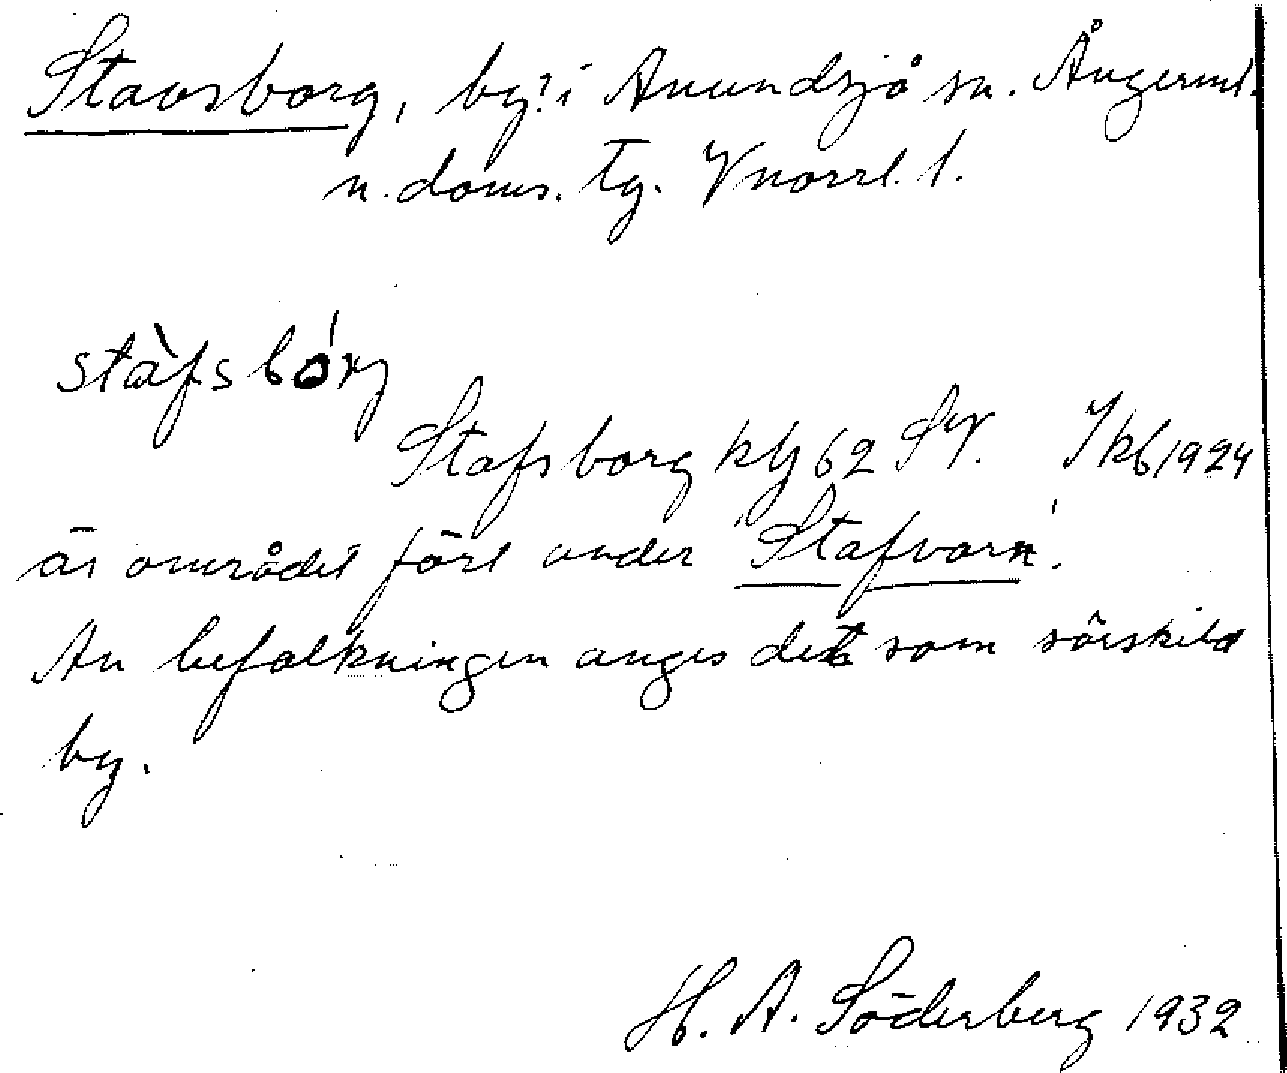 Stavsborg, by? i Anundsjö sn. Ångerml.
n. doms. tg. Vnorrl. l.
stàfsbórj
Stafsborg klj 62 SV. I kb 1924
är området fört under "Stafvarn".
Av befolkningen anges det som särskild
by.
H. A. Söderberg 1932